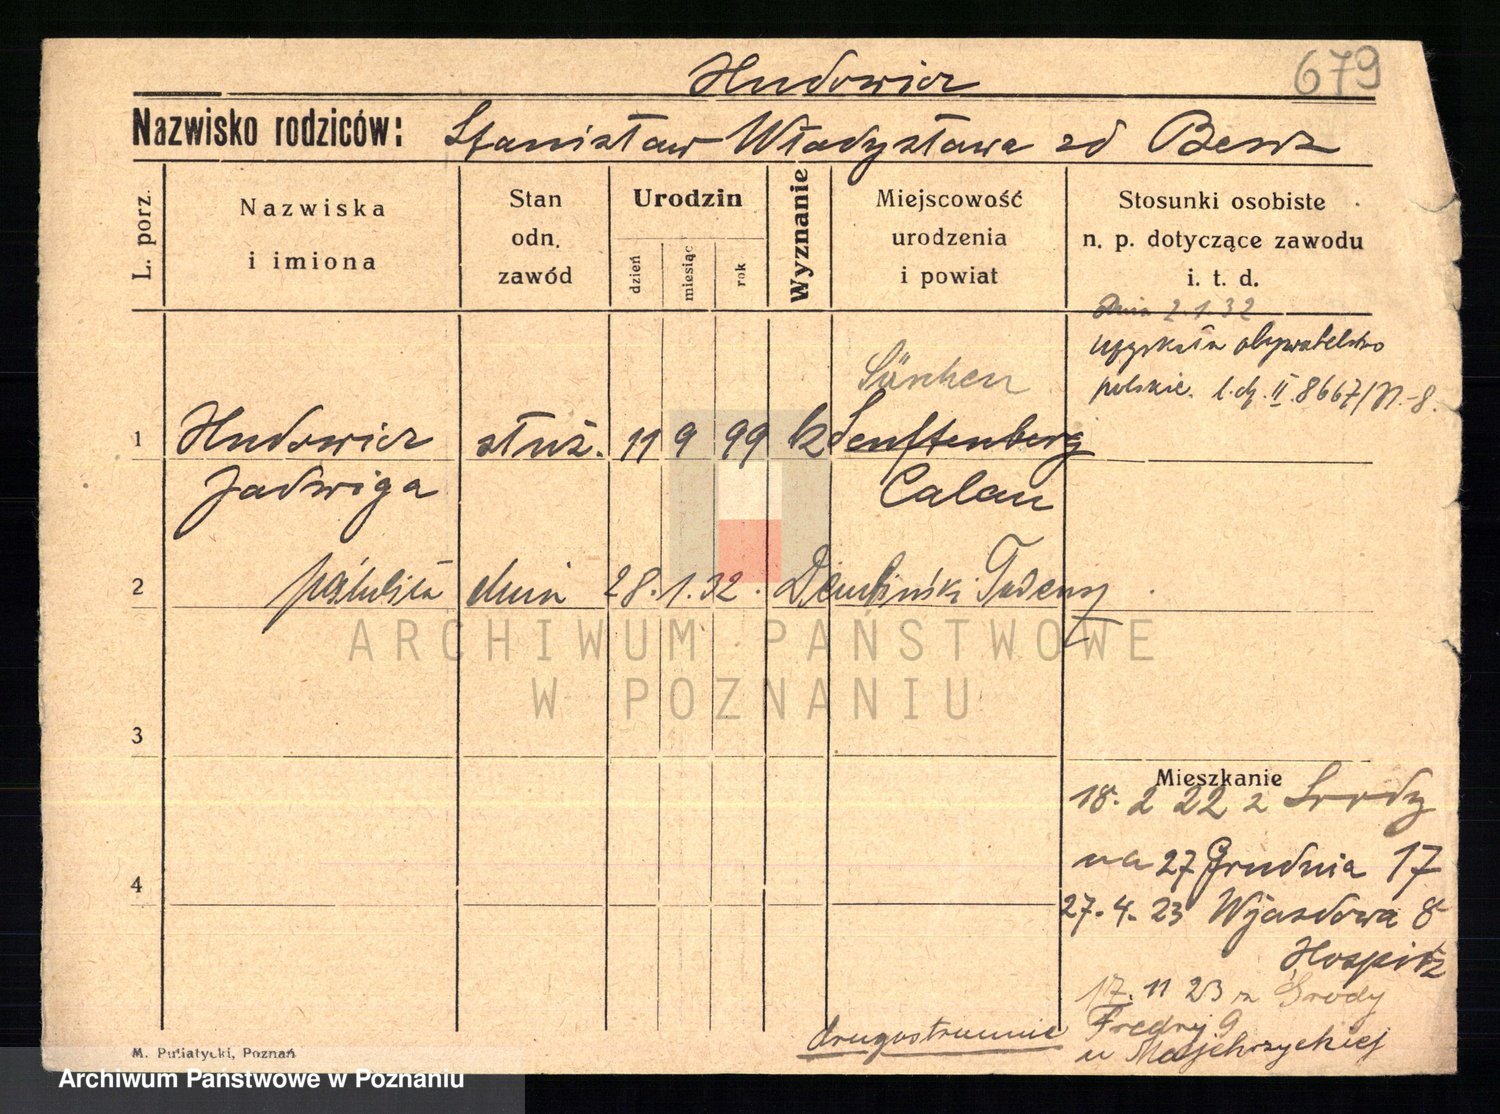 Hudowicz
679
Nazwisko rodziców: Stanisław Władysława zd
L. porz.
Nazwiska
i imiona
Stan
odn.
zawód
Urodzin
dzień
miesiąc
rok
Wyznanie
Miejscowość
urodzenia
i powiat
Stosunki osobiste
n. p. dotyczące zawodu
i. t. d.
Dnia 2.1.32
uzyskała obywatelstwo
polskie. II. 8667/
1 Hudowicz służ. 11 9 99 k Senftenberg
Jadwiga Calau
2 poślubiła dnia 28.1.32. Dembiński Tadeusz
3
4
Mieszkanie
18. 2 22 z Środy
na 27 Grudnia 17
27. 4. 23 Wjazdowa 8
Hospitz
17. 11 23 z Środy
Fredry 9
u Majchrzyckiej
drugostronnie
M. Putiatycki, Poznań
ARCHIWUM PAŃSTWOWE
W POZNANIU
Archiwum Państwowe w Poznaniu